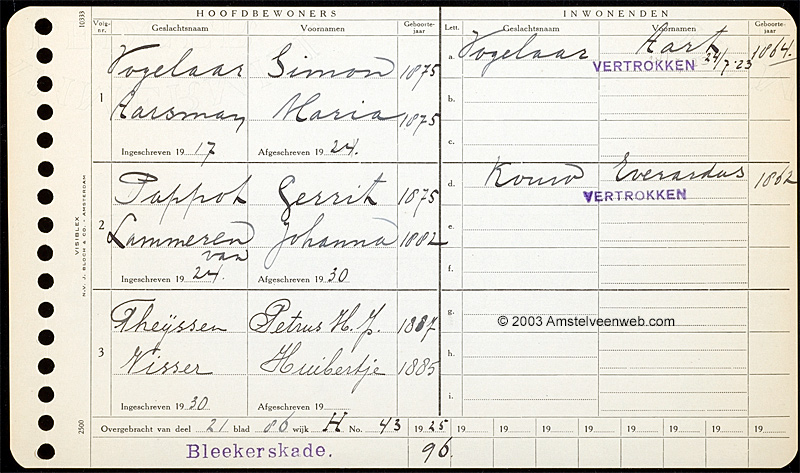 HOOFDBEWONERS INWONENDEN
Volg-nr. Geslachtsnaam Voornamen Geboorte-jaar Lett. Geslachtsnaam Voornamen Geboorte-jaar
1 Vogelaar Simon 1875 a. Vogelaar Aart 1864.
VERTROKKEN 24/7'23
b.
Aarsman Maria 1875
c.
Ingeschreven 19 17 Afgeschreven 19 24.
2 Pappot Gerrit 1875 d. Kouw Everardus 1862
VERTROKKEN
Lammeren Johanna 1882 e.
van
f.
Ingeschreven 19 24. Afgeschreven 19 30
3 Theyssen Petrus H. J. 1887 g.
© 2003 Amstelveenweb.com
Visser Huibertje 1885 h.
i.
Ingeschreven 19 30 Afgeschreven 19
Overgebracht van deel 21 blad 86 wijk H No. 43 19 25 19 19 19 19 19 19 19 19
Bleekerskade. 96.
10333
VISIBLEX
N.V. J. BLOCH & CO. - AMSTERDAM
2500